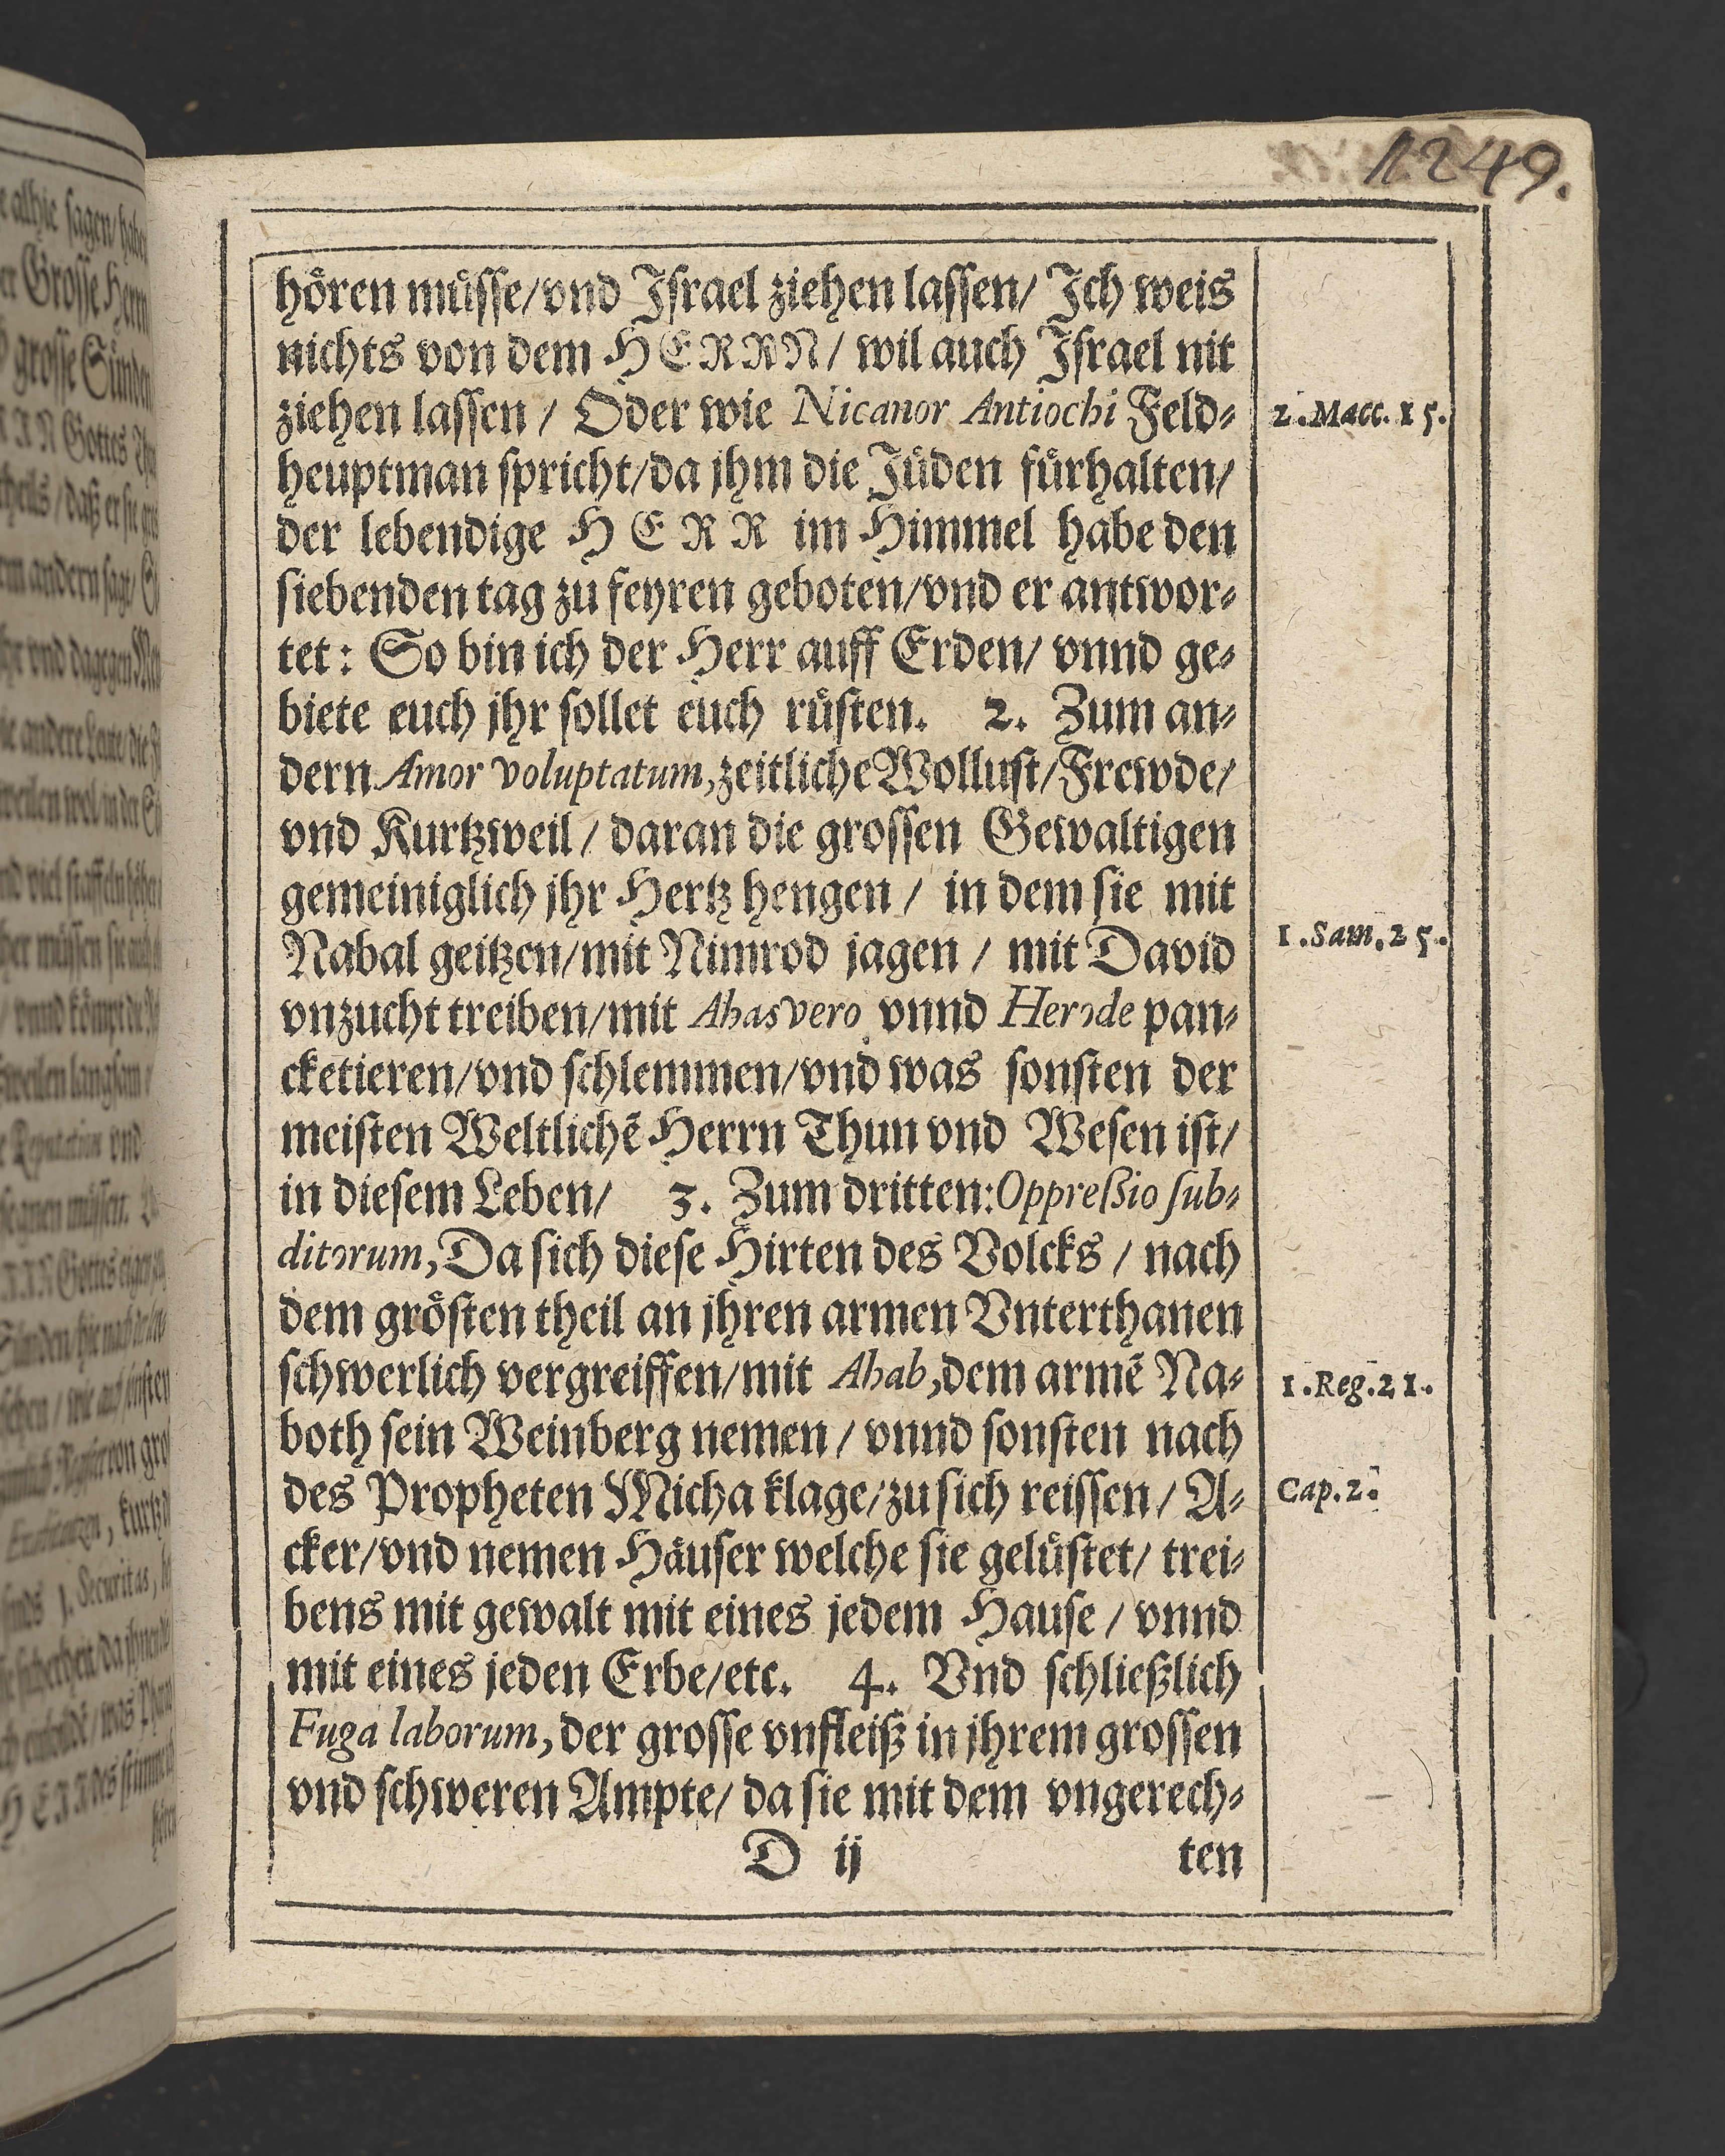 1249.
hören müsse/vnd Israel ziehen lassen/ Ich weis
nichts von dem HERRN/ wil auch Israel nit
ziehen lassen / Oder wie Nicanor Antiochi Feld-
2. Macc. 15.
heuptman spricht/da jhm die Jüden fürhalten/
der lebendige HERR im Himmel habe den
siebenden tag zu feyren geboten/vnd er antwor-
tet: So bin ich der Herr auff Erden/ vnnd ge-
biete euch jhr sollet euch rüsten. 2. Zum an-
dern Amor voluptatum, zeitliche Wollust/Frewde/
vnd Kurtzweil / daran die grossen Gewaltigen
gemeiniglich jhr Hertz hengen / in dem sie mit
Nabal geitzen/mit Nimrod jagen / mit David
1. Sam. 25.
vnzucht treiben/mit Ahasvero vnnd Herode pan-
cketieren/vnd schlemmen/vnd was sonsten der
meisten Weltlichẽ Herrn Thun vnd Wesen ist/
in diesem Leben/ 3. Zum dritten: Oppreßio sub-
ditorum, Da sich diese Hirten des Volcks / nach
dem grösten theil an jhren armen Vnterthanen
schwerlich vergreiffen/mit Ahab, dem armẽ Na-
1. Reg. 21.
both sein Weinberg nemen / vnnd sonsten nach
des Propheten Micha klage/zu sich reissen / A-
Cap. 2.
cker/vnd nemen Häuser welche sie gelüstet/ trei-
bens mit gewalt mit eines jedem Hause / vnnd
mit eines jeden Erbe/etc. 4. Vnd schließlich
Fuga laborum, der grosse vnfleiß in jhrem grossen
vnd schweren Ampte/ da sie mit dem vngerech-
D ij ten